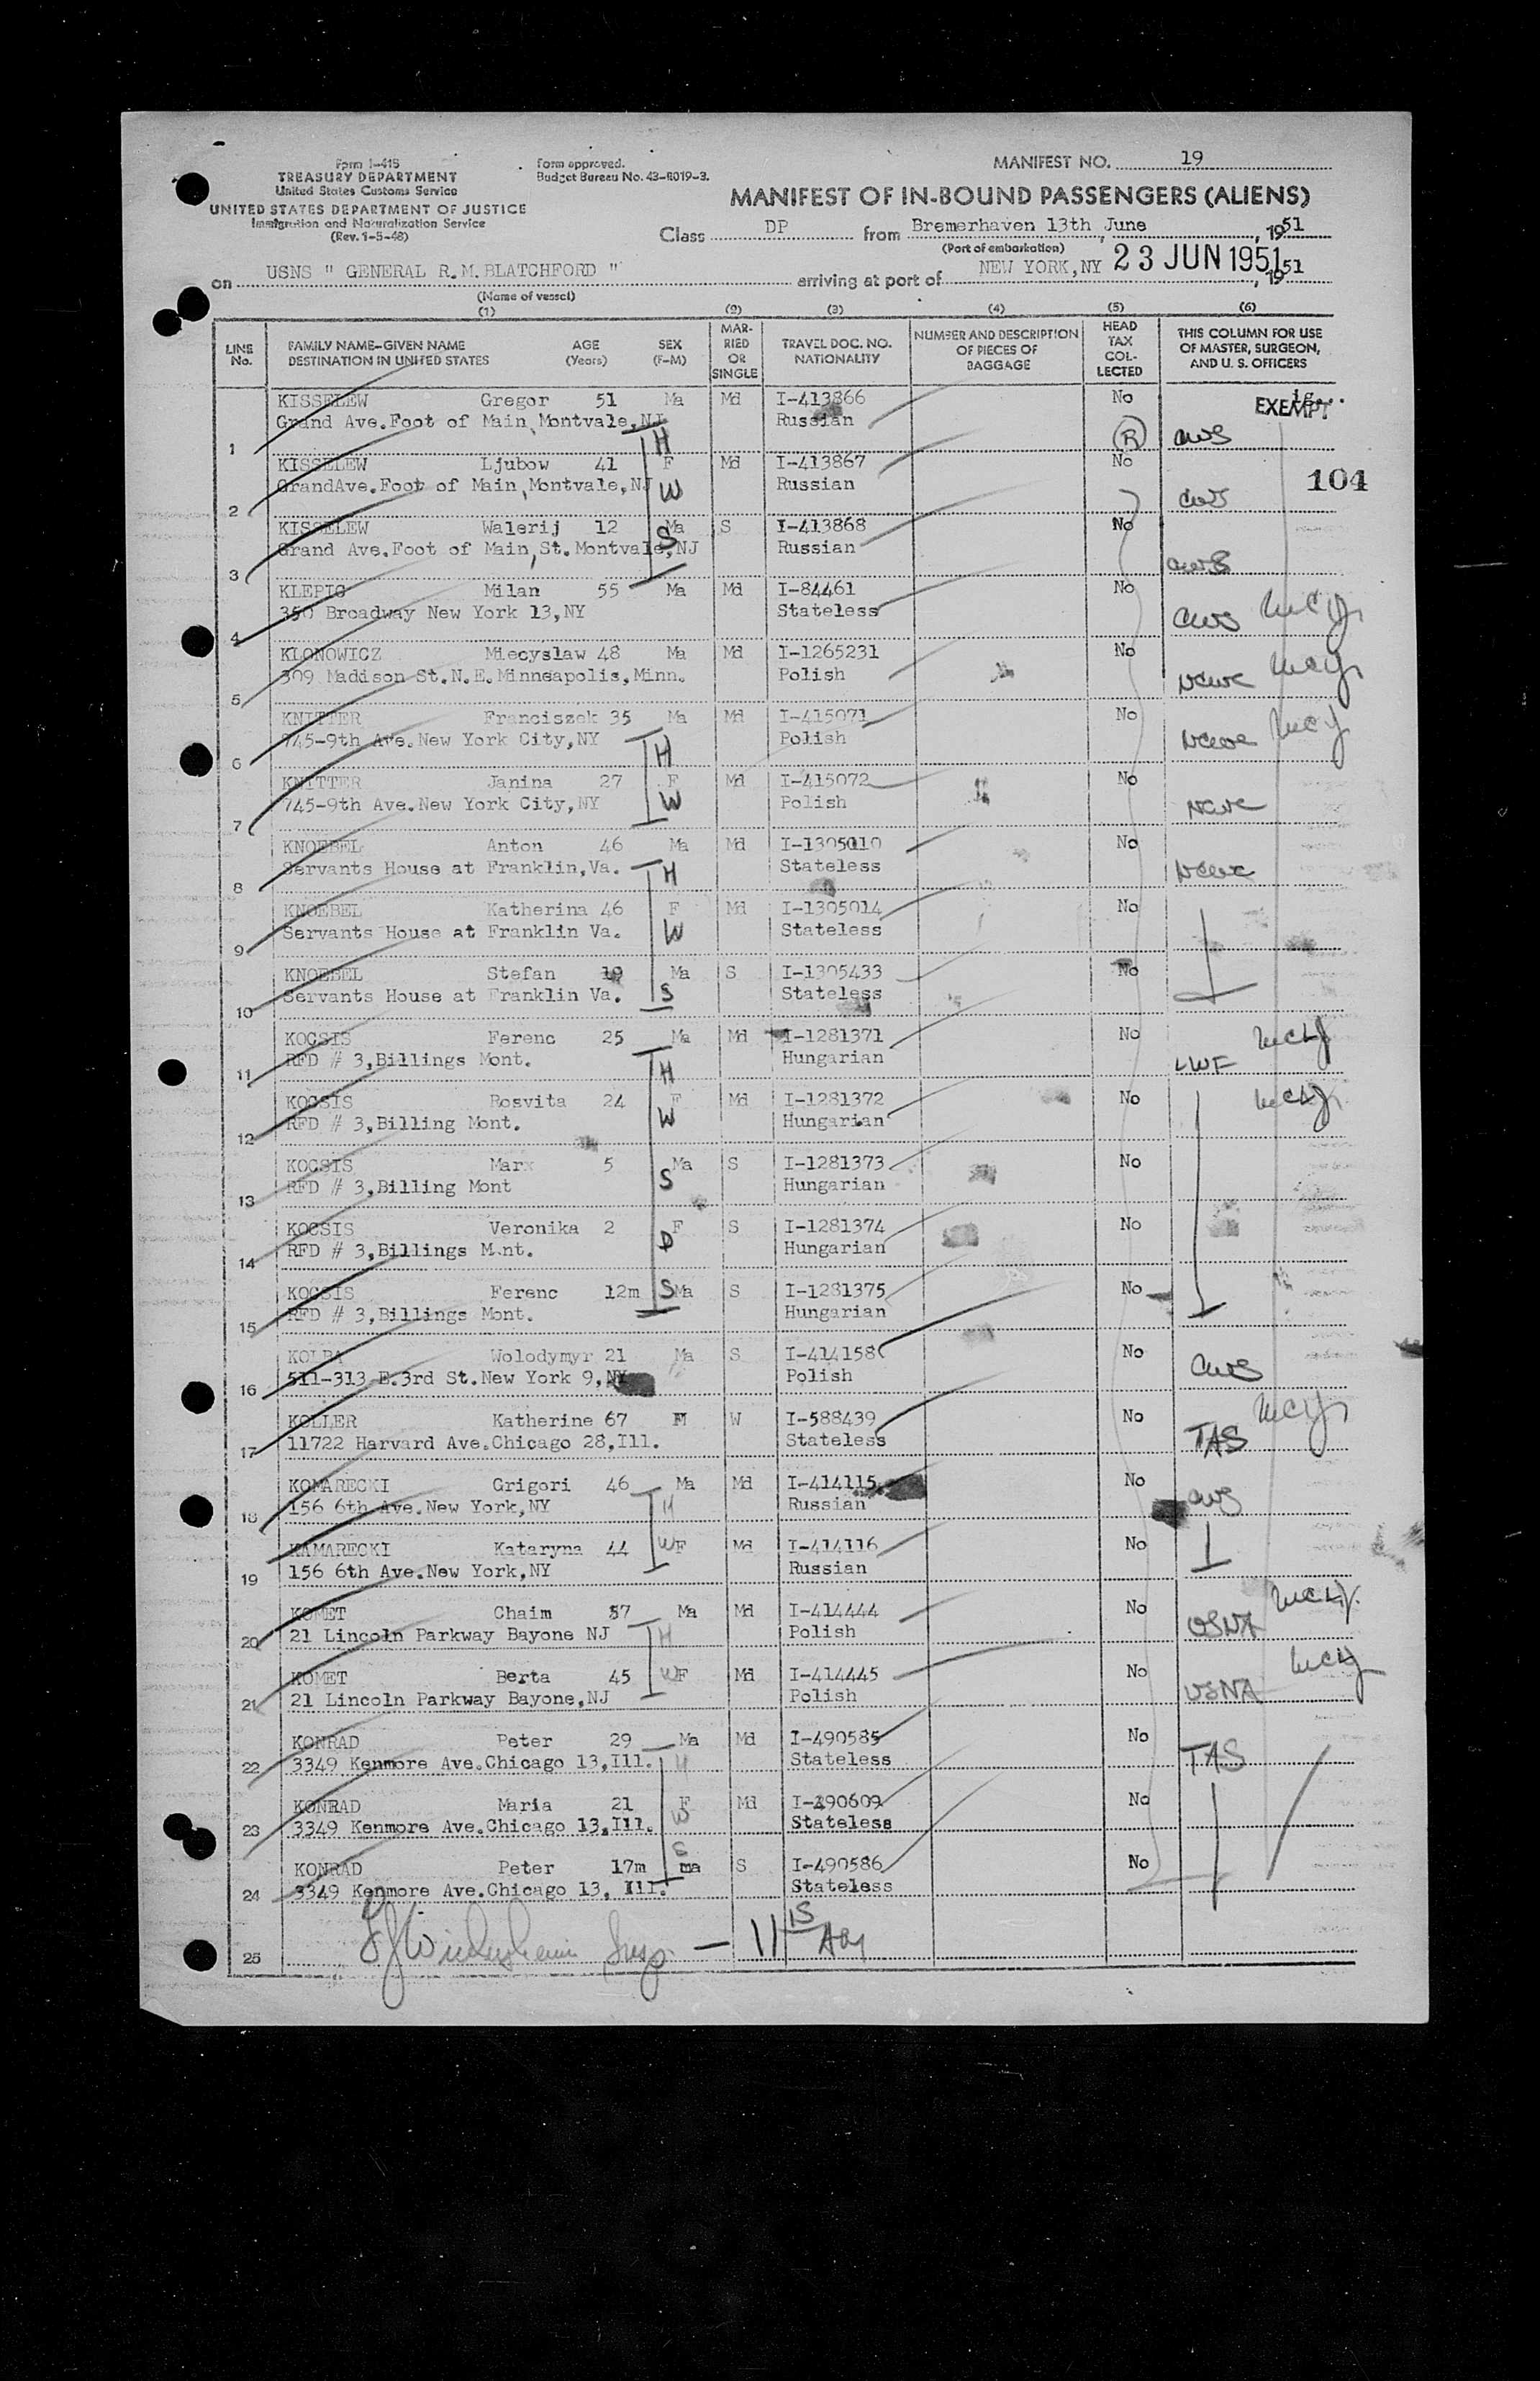 Form I-418
TREASURY DEPARTMENT
United States Customs Service
UNITED STATES DEPARTMENT OF JUSTICE
Immigration and Naturalization Service
(Rev. 1-5-48)
Form approved.
Budget Bureau No. 43-R019-3.
MANIFEST NO. 19
MANIFEST OF IN-BOUND PASSENGERS (ALIENS)
Class DP from Bremerhaven 13th June, 1951
(Port of embarkation)
on USNS " GENERAL R.M.BLATCHFORD " arriving at port of NEW YORK,NY 23 JUN 1951, 1951
(Name of vessel)
(1) (2) (3) (4) (5) (6)
LINE No. FAMILY NAME-GIVEN NAME DESTINATION IN UNITED STATES AGE (Years) SEX (F-M) MARRIED OR SINGLE TRAVEL DOC. NO. NATIONALITY NUMBER AND DESCRIPTION OF PIECES OF BAGGAGE HEAD TAX COLLECTED THIS COLUMN FOR USE OF MASTER, SURGEON, AND U. S. OFFICERS
KISSELEW Gregor 51 Ma Md I-413866 No EXEMPT
1 Grand Ave.Foot of Main,Montvale,NJ H Russian R CWS
KISSELEW Ljubow 41 F Md I-413867 No 104
2 GrandAve.Foot of Main,Montvale,NJ W Russian CWS
KISSELEW Walerij 12 Ma S I-413868 No
3 Grand Ave.Foot of Main,St.Montvale,NJ S Russian CWS
KLEPIC Milan 55 Ma Md I-84461 No
4 350 Broadway New York 13,NY Stateless CWS
KLONOWICZ Miecyslaw 48 Ma Md I-1265231 No
5 309 Madison St.N.E.Minneapolis,Minn. Polish NCWC
KNITTER Franciszek 35 Ma Md I-415071 No
6 745-9th Ave.New York City,NY H Polish NCWC
KNITTER Janina 27 F Md I-415072 No
7 745-9th Ave.New York City,NY W Polish NCWC
KNOEBEL Anton 46 Ma Md I-1305010 No
8 Servants House at Franklin,Va. H Stateless NCWC
KNOEBEL Katherina 46 F Md I-1305014 No
9 Servants House at Franklin Va. W Stateless
KNOEBEL Stefan 19 Ma S I-1305433 No
10 Servants House at Franklin Va. S Stateless
KOCSIS Ferenc 25 Ma Md I-1281371 No
11 RFD # 3,Billings Mont. H Hungarian LWF
KOCSIS Rosvita 24 F Md I-1281372 No
12 RFD # 3,Billing Mont. W Hungarian
KOCSIS Marx 5 Ma S I-1281373 No
13 RFD # 3,Billing Mont S Hungarian
KOCSIS Veronika 2 F S I-1281374 No
14 RFD # 3,Billings M.nt. D Hungarian
KOCSIS Ferenc 12m S Ma S I-1281375 No
15 RFD # 3,Billings Mont. Hungarian
KOLBA Wolodymyr 21 Ma S I-414158 No
16 511-313 E.3rd St.New York 9,NY Polish CWS
KOLLER Katherine 67 F W I-588439 No
17 11722 Harvard Ave.Chicago 28,Ill. Stateless TAS
KOMARECKI Grigori 46 Ma Md I-414115 No
18 156 6th Ave.New York,NY H Russian CWS
KAMARECKI Kataryna 44 W F Md I-414116 No
19 156 6th Ave.New York,NY Russian
KOMET Chaim 57 Ma Md I-414444 No
20 21 Lincoln Parkway Bayone NJ H Polish USNA
KOMET Berta 45 W F Md I-414445 No
21 21 Lincoln Parkway Bayone,NJ Polish USNA
KONRAD Peter 29 Ma Md I-490585 No
22 3349 Kenmore Ave.Chicago 13,Ill. H Stateless TAS
KONRAD Maria 21 F Md I-490609 No
23 3349 Kenmore Ave.Chicago 13,Ill. W Stateless
KONRAD Peter 17m S ma S I-490586 No
24 3349 Kenmore Ave.Chicago 13, Ill. Stateless
25